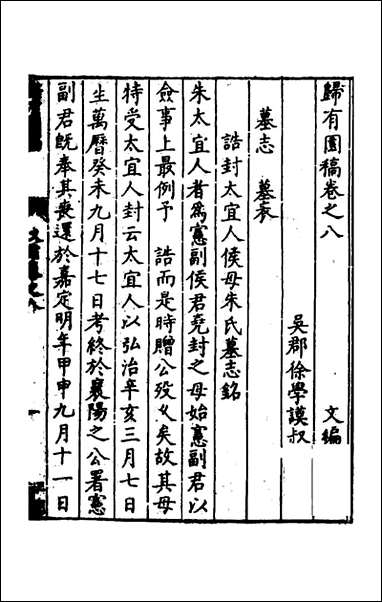 歸有園稿卷之八　文編
吳郡徐學謨叔
墓志　墓表
誥封太宜人侯母朱氏墓志銘
朱太宜人者為憲副侯君堯封之母始憲副君以
僉事上最例予　誥而是時贈公歿久矣故其母
特受太宜人封云太宜人以弘治辛亥三月七日
生萬曆癸未九月十七日考終於襄陽之公署憲
副君既奉其喪還於嘉定明年甲申九月十一日